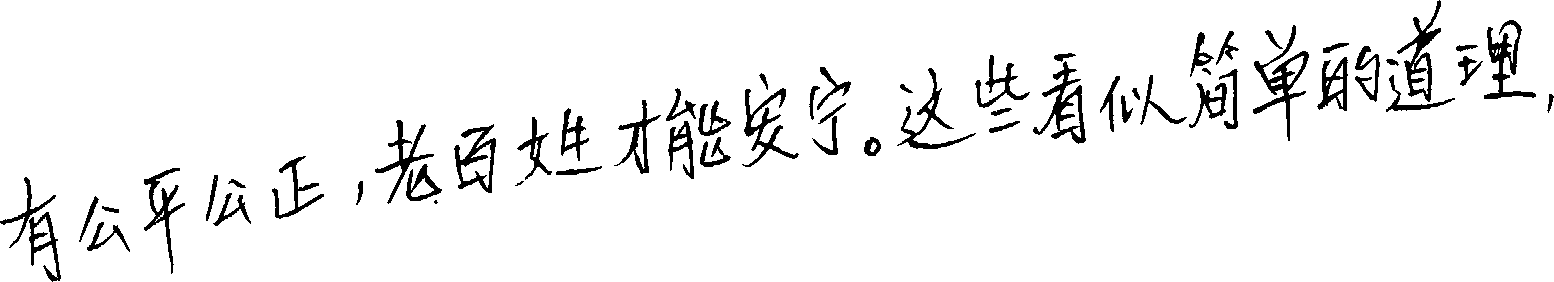 有公平公正,老百姓才能安宁。这些看似简单的道理,